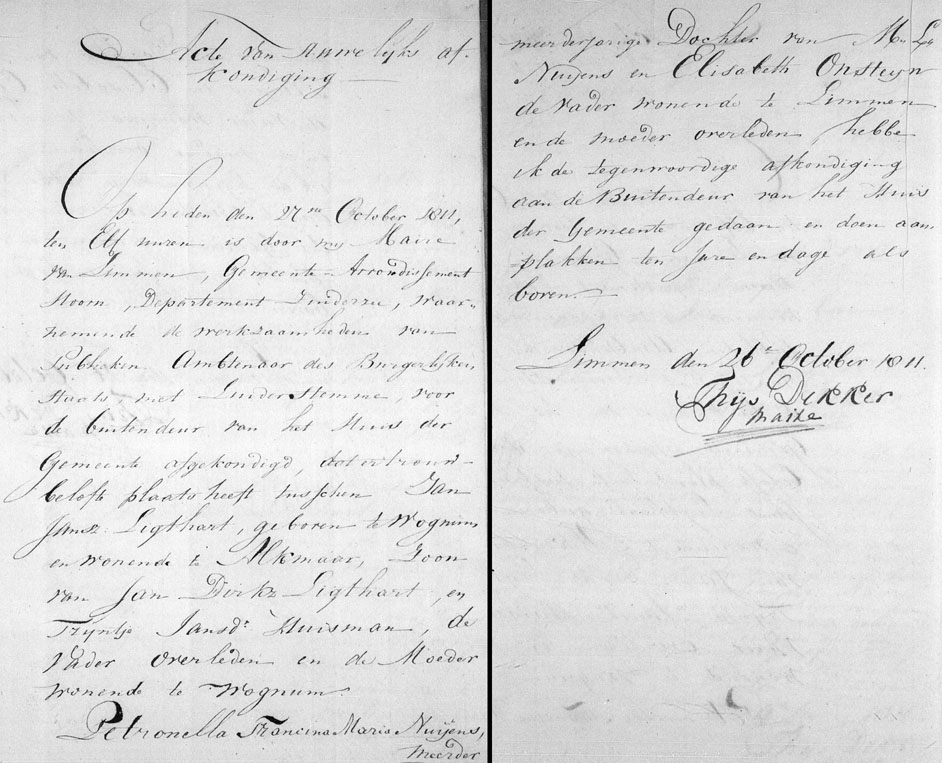 Acte van Huwelijks af-
kondiging
Op heden den 27sten October 1811,
ten Elf uuren is door mij Maire
van Limmen, Gemeente-Arrondissement
Hoorn, Departement Zuiderzee, waar-
nemende de werkzaamheden van
Publieken Ambtenaar des Burgerlijken
Staats met Luider Stemme, voor
de buitendeur van het Huis der
Gemeente afgekondigd, dat er trouw-
belofte plaats heeft tusschen Jan
Jansz: Ligthart, geboren te Wognum
en wonende te Alkmaar, Zoon
van Jan Dirksz Ligthart, en
Tryntje Jansdr Huisman, de
Vader overleden en de Moeder
wonende te Wognum
Petronella Francina Maria Nuijens,
meerder
meerderjarige Dochter van
Nuijens en Elisabeth Onsteyn
de vader wonende te Limmen
en de moeder overleden, hebbe
ik de tegenwoordige afkondiging
aan de Buitendeur van het Huis
der Gemeente gedaan en doen aan
plakken ten Jure en dage als
boren.
Limmen den 26ste October 1811.
Thijs Dekker
Maire